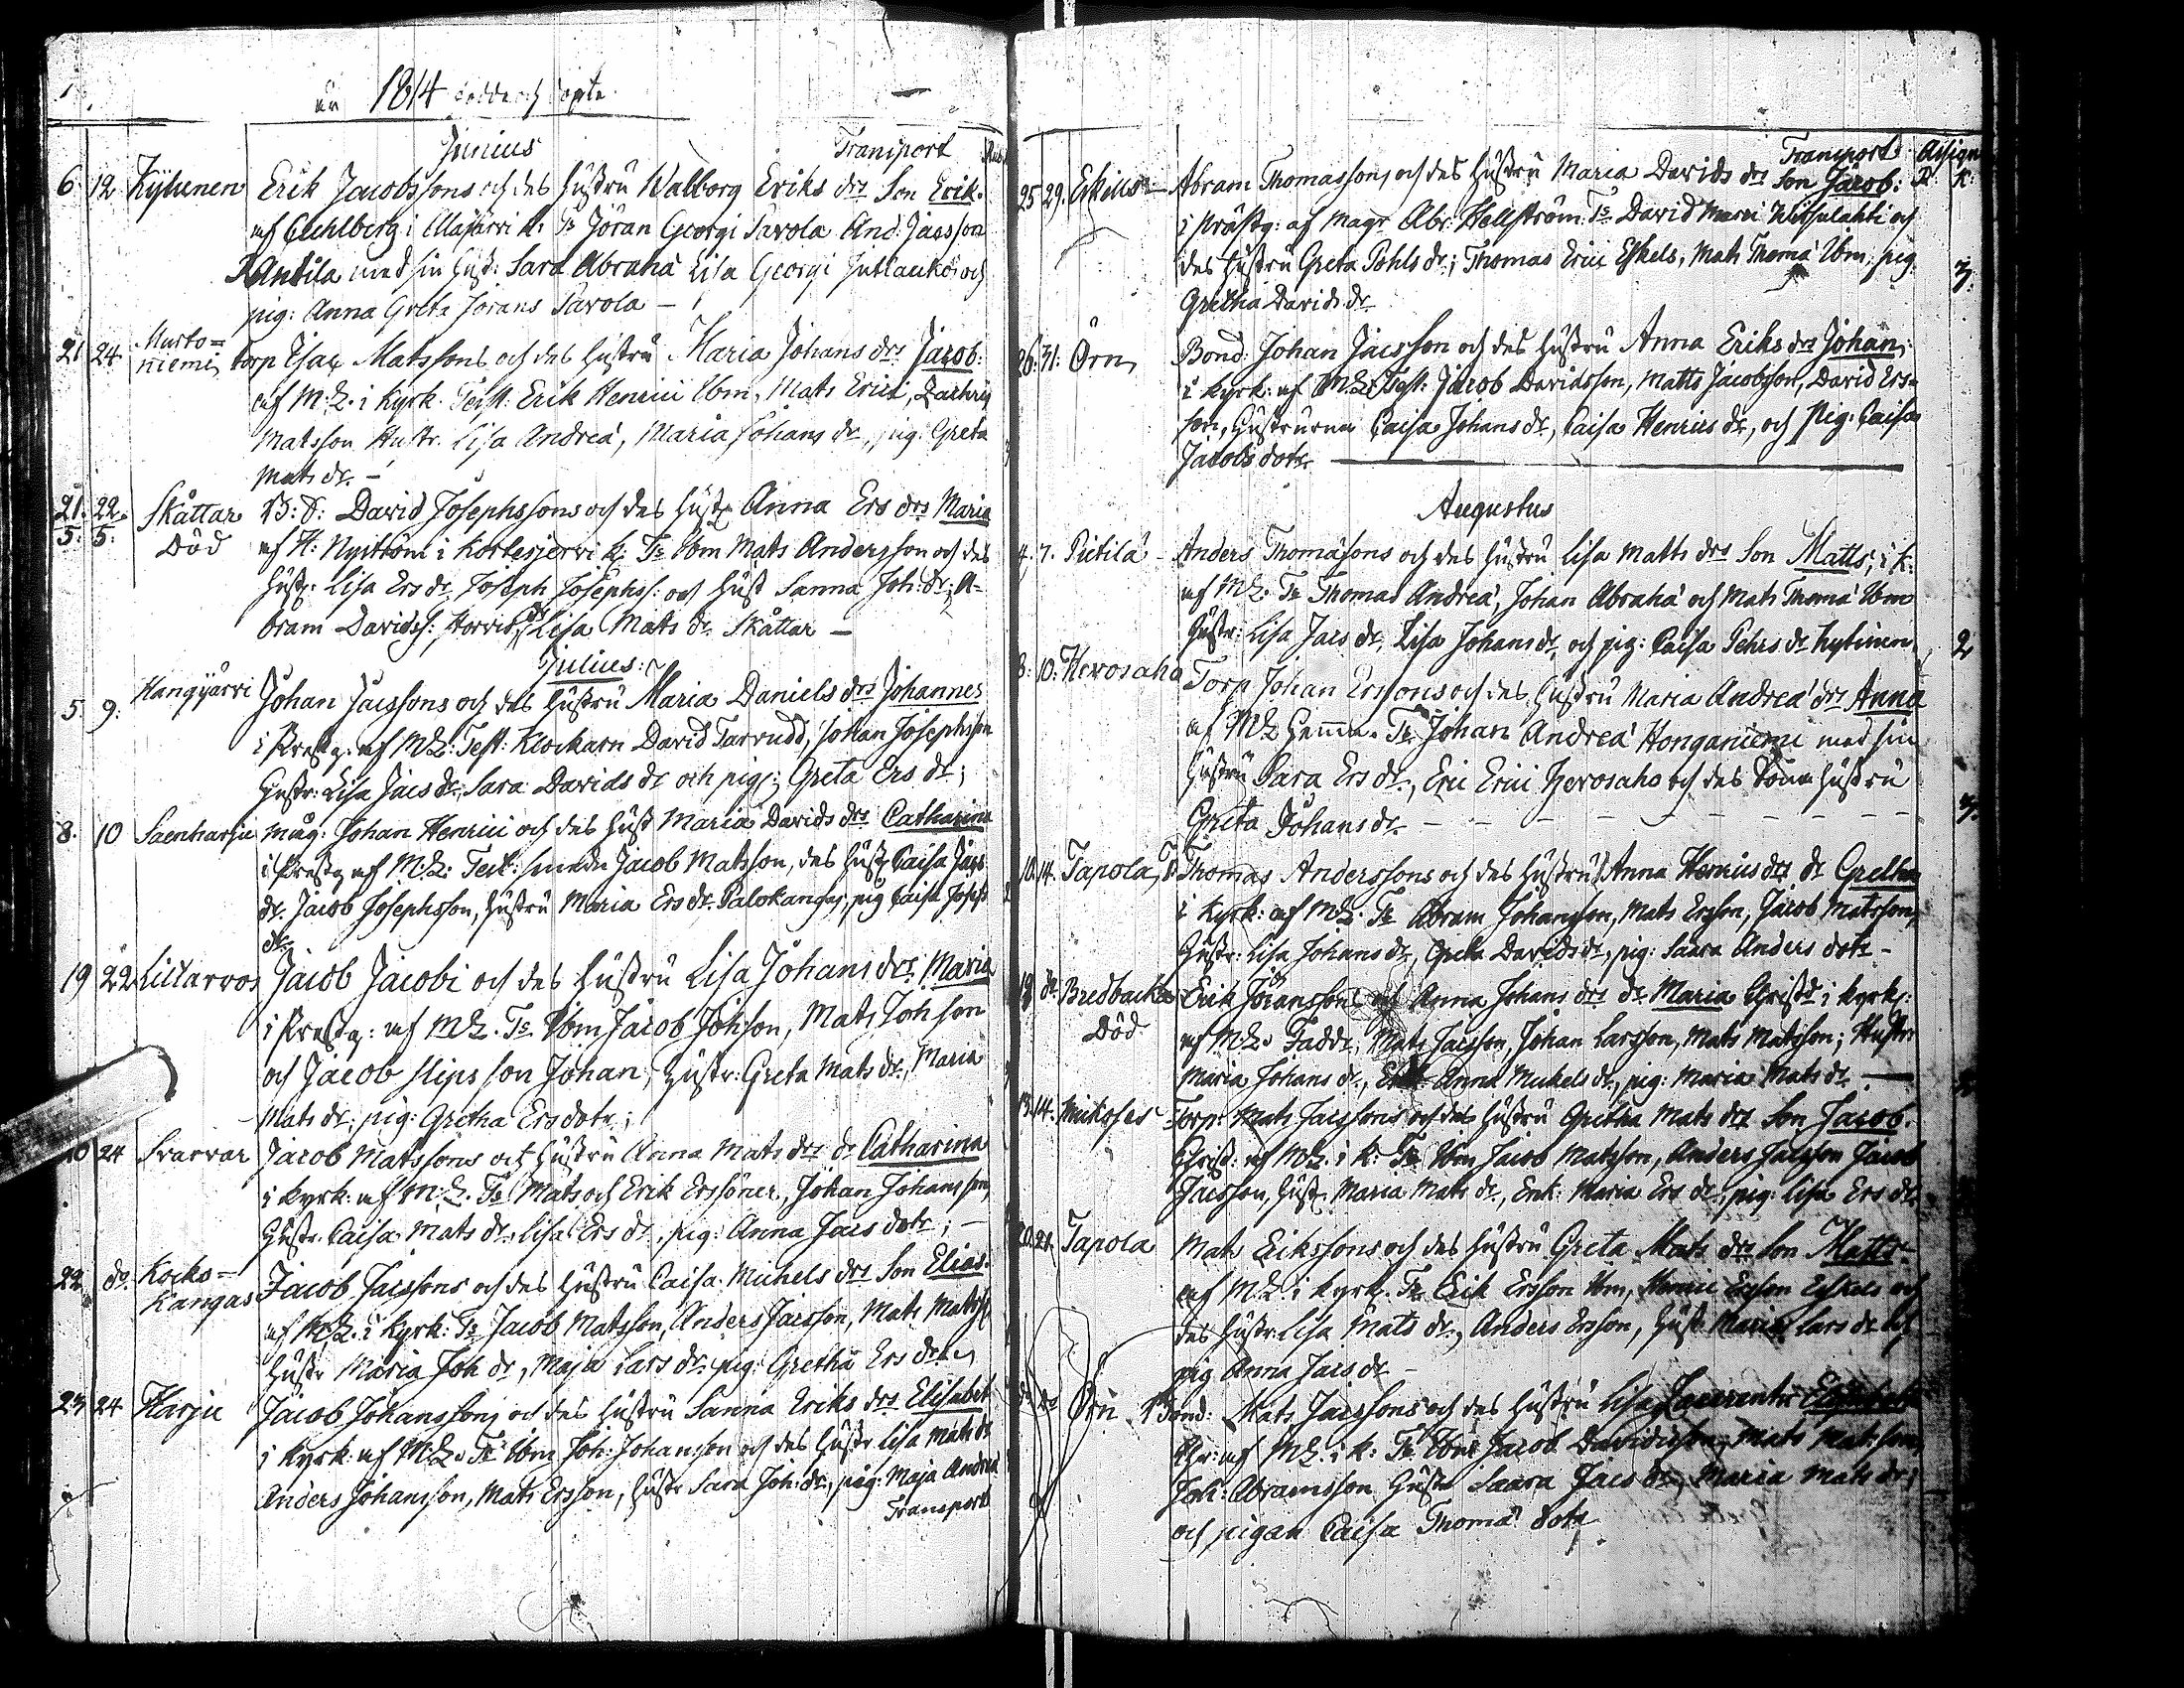 år 1814 födde och döpte
Junius Transport
6. 12 Kÿtunen Erik Jacobssons och des hustru Walborg Eriks drs Son Erik.
af Aehlberg i Allajärvi k: Ts Jöran Georgi Parola And: Jacsson
Antila med sin hust: Sara Abraha Lisa Georgi och
pig: Anna Greta Jörans Parola –
21 24 Murto=
niemi torp Esax Matssons och des hustru Maria Johans drs Jacob:
af M.Z. i Kyrk. Test: Erik Henrici Ibm, Mats Erici, Zachris
Matsson Hustr. Lisa Andreä, Maria Johans dr, pig: Greta
Mats dr. –
21. 22. Skåttar B: S: David Josephssons och des hust Anna Ers drs Maria
5. 5. Död af H: Nyström i Kortesjervi k: Ts Ibm Mats Andersson och des
hustr. Lisa Ers dr, Joseph Josephss: och hust Sanna Joh: dr; A-
bram Davidss: och Lisa Mats dr Skåttar –
Julius:
5. 9: Hangÿärvi Johan Jacssons och des hustru Maria Daniels drs Johannes
i Prestg. af M.Z: Test: Klockarn David Tarrudd, Johan Josephsson
Hustr: Lisa Jacs dr, Sara Davids dr och pig: Greta Ers dr;
8. 10 Saenharju Måg: Johan Henrici och des hust Maria Davids drs Catharina
i Prestg af M.Z: Test: smeden Jacob Matsson, des hust Caisa Jacs
dr. Jacob Josephsson, hustru Maria Ers dr. Palokangas, pig Caisa Josefs
dr.
19 22 Lillarvos Jacob Jacobi och des hustru Lisa Johans drs Maria
i Prestg: af M.Z. Ts Ibm Jacob Johsson, Mats Johsson
och Jacob slips son Johan, hustr: Greta Mats dr, Maria
Mats dr; pig: Gretha Ers dotr;
20 24 Svarvar Jacob Matssons och hustru Anna Mats drs dr Catharina
i kyrk: af M.Z. Ts Mats och Erik Erssöner, Johan Johansson,
hustr. Caisa Mats dr, Lisa Ers dr, pig: Anna Jacs dotr; –
22 do. Kocko=
Kangas Jacob Jacssons och des hustru Caisa Michels drs Son Elias.
af M.Z. i kyrk: Ts Jacob Matsson, Anders Jacsson, Mats Matss:
hustr Maria Joh dr, Maja Lars dr. pig: Gretha Ers dotr
23 24 Harju Jacob Johanssons och des hustru Sanna Eriks drs Elisabet
i kyrk: af M.Z. Ts Ibm Joh: Johansson och des hustr Lisa Mats dr
Anders Johansson, Mats Ersson, hustr Sara Joh: dr, pig: Maja Andreä
Transport
Transport Assign
25 29. Eskils – Abram Thomassons och des hustru Maria Davids drs Son Jacob: R: K:
i Prästg: af Magr Abr: Hellström Ts David och
des hustru Greta Pohls dr; Thomas Erici Eskels, Mats Thomä Ibm, pig:
Gretha Davids dr 3:
26. 31: Örn Bond: Johan Jacsson och des hustru Anna Eriks drs Johan;
i kyrk: af M.Z. Test: Jacob Davidsson, Matts Jacobsson, David Ers-
son, hustrurna Caisa Johans dr, Caisa Henrics dr, och Pig: Caisa
Jacobs dotr.
Augustus
4. 7. Pietilä – Anders Thomäsons och des hustru Lisa Matts drs Son Matts; i K.
af M.Z. Ts Thomas Andreä, Johan Abraha och Mats Thomä Ibm
hustr: Lisa Jacs dr, Lisa Johans dr, och pig: Caisa Pehrs dr Kytunen 2
8. 10: Hervosaho Torp Johan Erssons och des hustru Maria Andreä drs Anna
af M.Z. hemma. Ts Johan Andreä Honganiemi med sin
hustru Sara Ers dr, Eric Erici Hervosaho och des hustru
Greta Johans dr – – – – – – – – 3.
10. 14. Tapola, Thomas Anderssons och des hustru Anna Henrics drs dr Gretha
i Kyrk: af M.Z. Ts Abram Johansson, Mats Ersson, Jacob Matsson,
hustr: Lisa Johans dr, Greta Davids dr, pig: Saara Anders dotr –
12 do Bredbacka Erik Jöransson och Anna Johans drs dr Maria Christd i kyrk:
Död af M.Z. Faddr; Mats Jacsson, Johan Larsson, Mats Matsson; Hustr
Maria Johans dr, Anna Michels dr, pig: Maria Mats dr. –
13. 14. Mickoses Torp: Mats Jacssons och des hustru Gretha Mats drs Son Jacob.
Christ: af M.Z. i k: Ts Ibm Jacob Matsson, Anders Jacsson Jacob
Jacsson, hust. Maria Mats dr, Enk: Maria Ers dr, pig: Lisa Ers dr
20. 21. Tapola Mats Erikssons och des hustru Greta Mats drs Son Matts
af M.Z. i kyrk. Ts Erik Ersson Ibm, Henric Ersson Eskels och
des hustr. Lisa Mats dr, Anders Ersson, hust Maria Lars dr och
pig Anna Jacs dr –
do do Örn Bond: Mats Jacssons och des hustru Lisa
Chr: af M.Z. i k: Ts Ibm Jacob Davidsson, Mats Matsson,
Joh: Abramsson hustr Saara Jacs dr, Maria Mats dr;
och pigan Caisa Thomä dotr